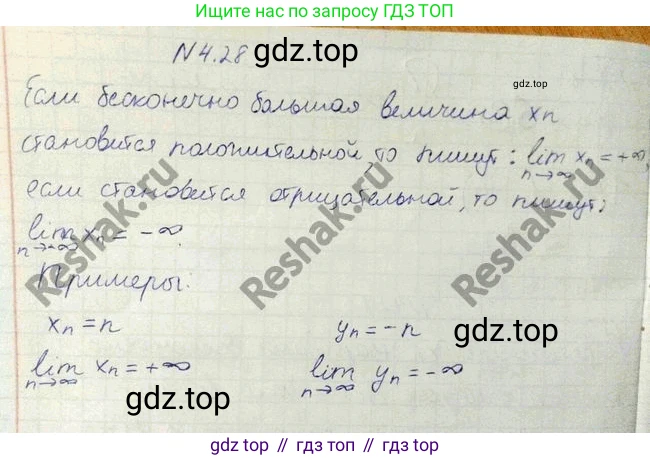 Ищите нас по запросу ГДЗ ТОП
N 4.28
gdz.top
Если бесконечно большая величина xn
gdz.top
становится положительной то пишут: lim xn = +∞,
n→∞
если становится отрицательной, то пишут:
lim xn = -∞
n→∞
Reshak.ru
Reshak.ru
Reshak.ru
Примеры:
xn = n
yn = -n
gdz.top
lim xn = +∞
n→∞
lim yn = -∞
n→∞
gdz.top
gdz.top
gdz.top // гдз топ // gdz.top